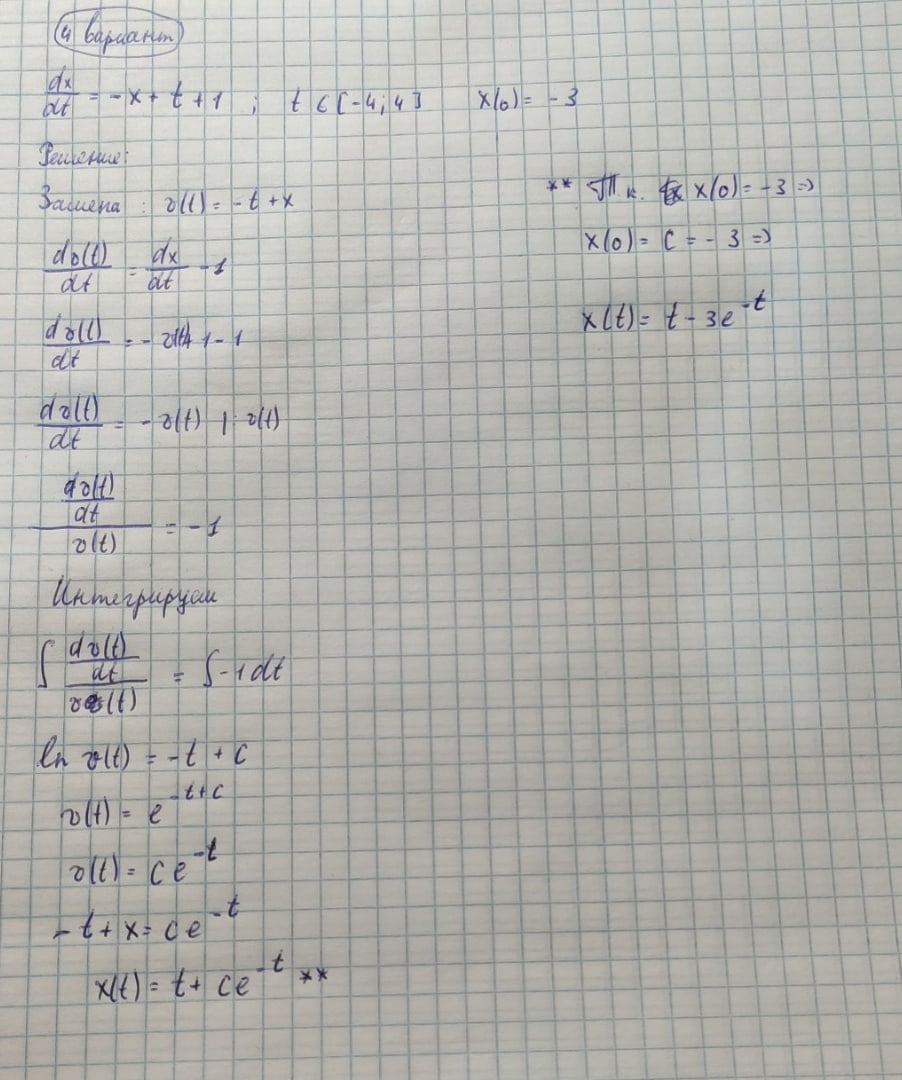 4 вариант
dx/dt = -x + t + 1 ; t ∈ [-4; 4] x(0) = -3
Решение:
Замена: v(t) = -t + x
dv(t)/dt = dx/dt - 1
dv(t)/dt = - v(t)+ 1 - 1
dv(t)/dt = - v(t) | : v(t)
(dv(t)/dt)/v(t) = -1
Интегрируем
∫ (dv(t)/dt)/v(t) = ∫ -1 dt
ln v(t) = -t + c
v(t) = e^(-t+c)
v(t) = ce^(-t)
-t + x = ce^(-t)
x(t) = t + ce^(-t) **
** Т.к. x(0) = -3 =>
x(0) = C = -3 =>
x(t) = t - 3e^(-t)